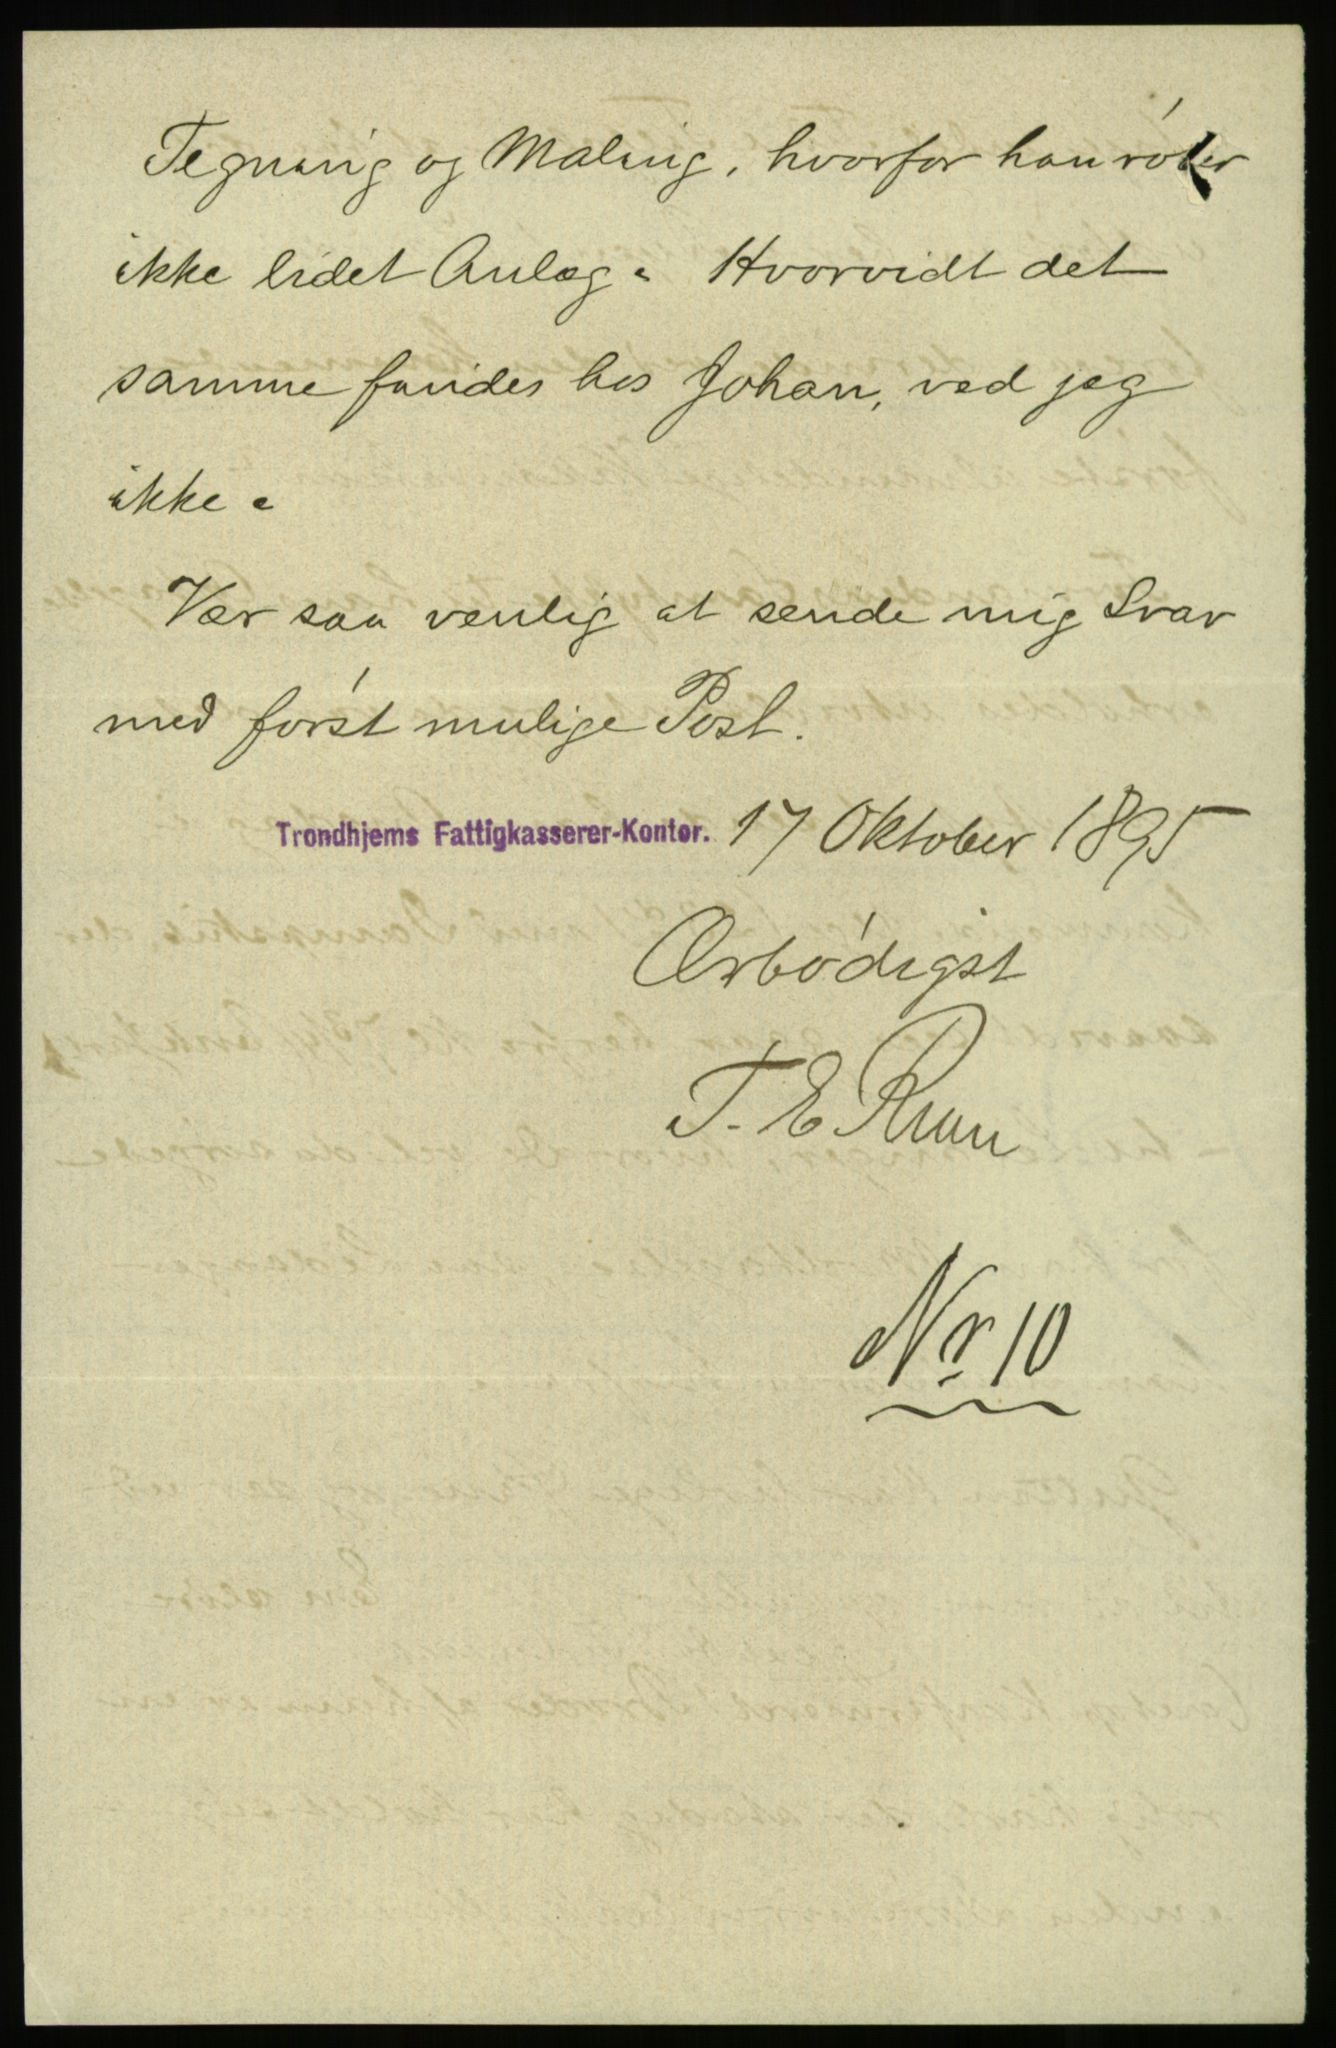 Tegning og Maling, hvorfor han röber
ikke lidet Anlæg. Hvorvidt det
samme findes hos Johan, ved jeg
ikke.
Vær saa venlig at sende mig Svar
med först mulige Post.
Trondhjems Fattigkasserer-Kontor. 17 Oktober 1895
Ærbödigst
T. E.
Nr 10